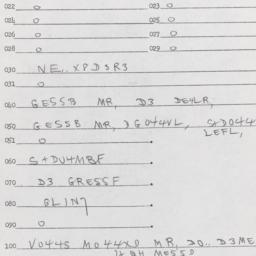 022 0 023 0
024 0 025 0
026 0 027 0
028 0 029 0
030 NE.. XPDSR3
031 0
040 GESSB MR, D3 DEHLR,
050 GESSB MR, JG044VL, S+D044
LEFL,
051 0
060 S+DU4MBF
070 D3 GRESSF
080 GLIN7
090 0
100 V044S M044XD MR, D0.. D3ME